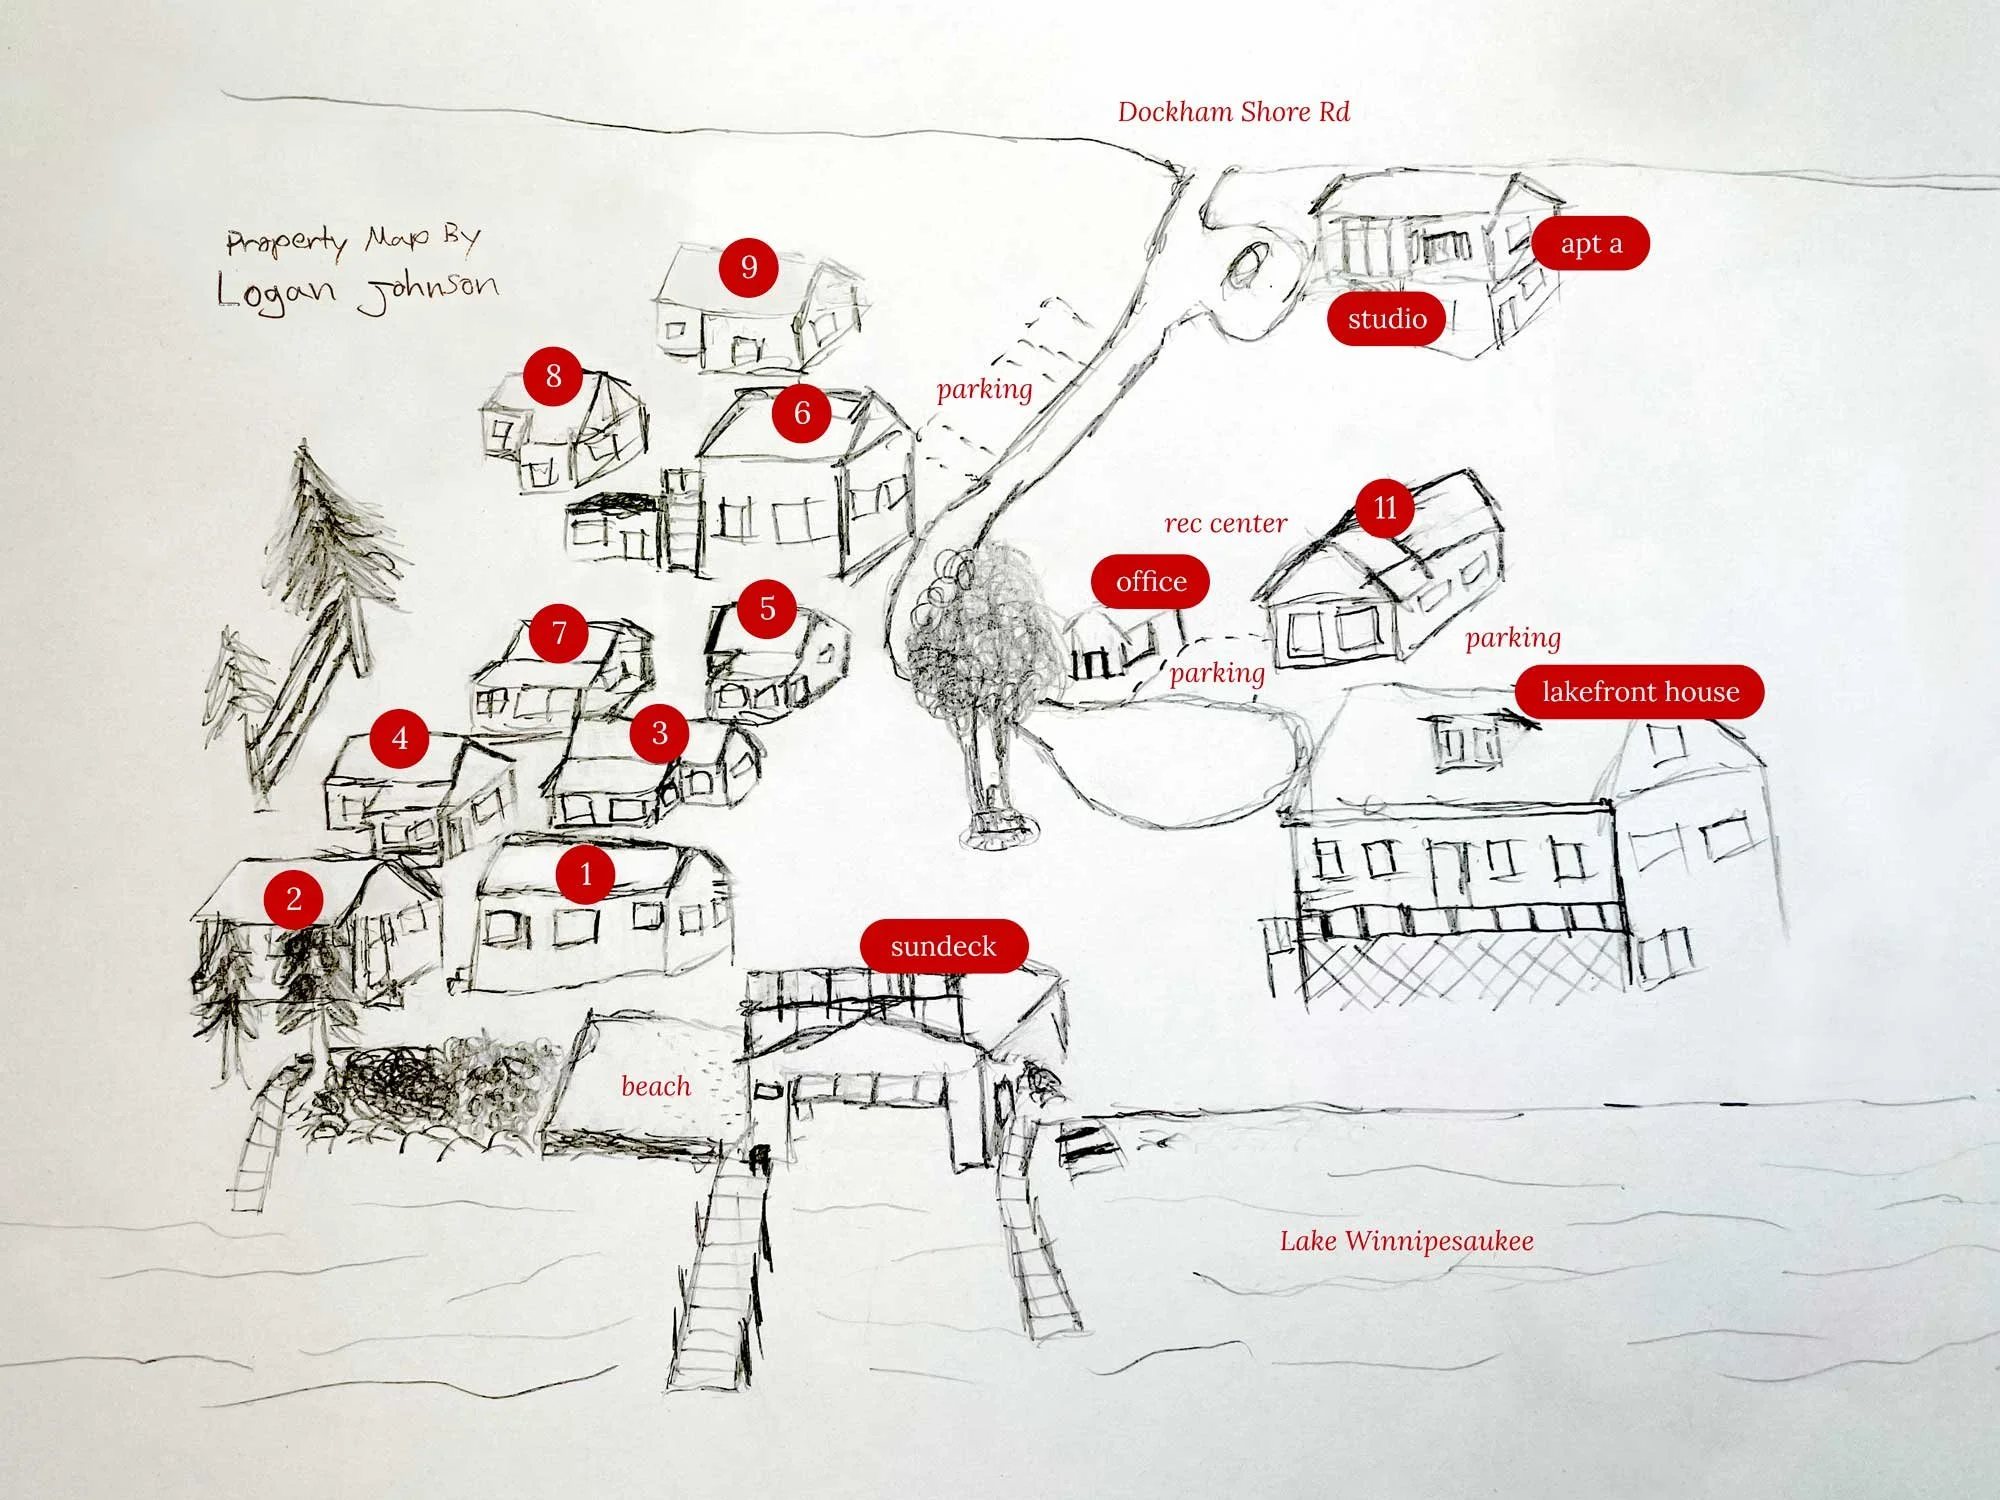 Dockham Shore Rd
Property Map By
Logan Johnson
apt a
9
studio
8
parking
6
11
rec center
office
5
7
parking
parking
lakefront house
3
4
1
2
sundeck
beach
Lake Winnipesaukee